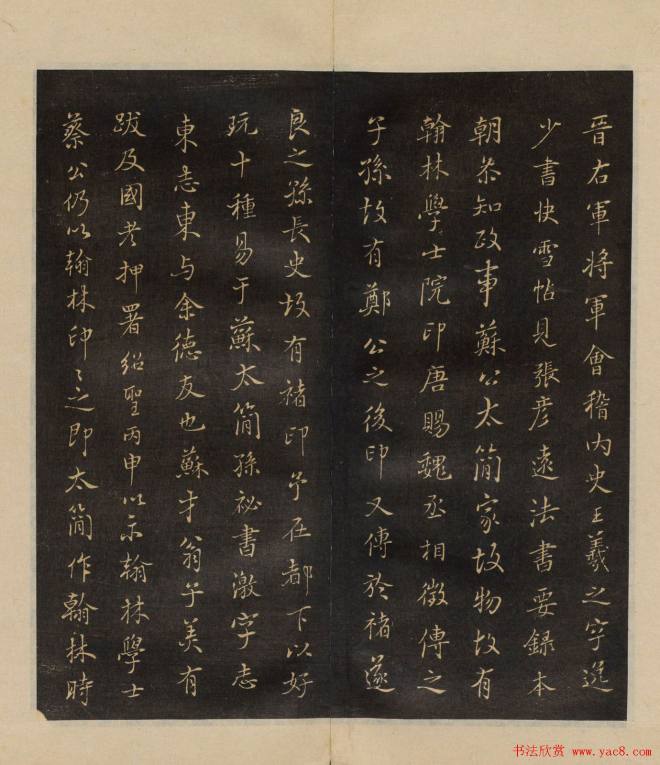 晉右軍將軍會稽內史王羲之字逸
少書快雪帖見張彥遠法書要錄本
朝叅知政事蘇公太簡家故物故有
翰林學士院印唐賜魏丞相徵傳之
子孫故有鄭公之後印又傳於褚遂
良之孫長史故有褚印予在都下以好
玩十種易于蘇太簡孫祕書激字志
東志東与余德友也蘇才翁子美有
跋及國老押署紹聖丙申以示翰林學士
蔡公仍以翰林印〻之即太簡作翰林時
书法欣赏 www.yac8.com